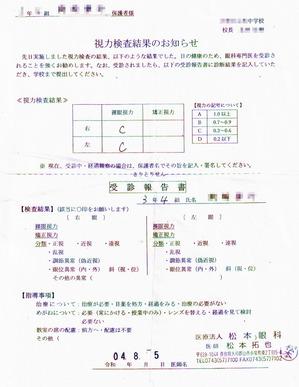 年 組 保護者様
中学校
校長
視力検査結果のお知らせ
先日実施しました視力検査の結果、以下のような結果でした。目の健康のため、眼科専門医を受診さ
れることを強くお勧めします。なお、受診されましたら、以下の受診報告書に診断結果を記入していた
だき、学校まで提出してください。
≪視力検査結果≫
裸眼視力 矯正視力
右 C
左 C
【視力の記号について】
A 1.0以上
B 0.7~0.9
C 0.3~0.6
D 0.2以下
※ 現在、受診中・経過観察の場合は、保護者名でその旨を記入・署名してください。
きりとりせん
受診報告書
3年4組 氏名
【検査結果】(該当に○印をお願いします)
(右 眼) (左 眼)
裸眼視力 裸眼視力
矯正視力 矯正視力
分類・正視 ・近視 ・遠視 分類・正視 ・近視 ・遠視
・乱視 ・乱視
・調節異常(偽近視) ・調節異常(偽近視)
・眼位異常(内・外) 斜(視・位) ・眼位異常(内・外) 斜(視・位)
・その他( ) ・その他( )
【指導事項】
治療について:治療が必要・目薬を処方・経過をみる・治療の必要がない
めがねについて:必要(常にかける・授業中のみ)・レンズを替える・経過を見て検討
必要ない
教室の席の配慮:前方へ・配慮は不要
その他( )
医療法人 松本眼科
医師 松本拓也
04.8.-5
令和 年 月 日 医師名